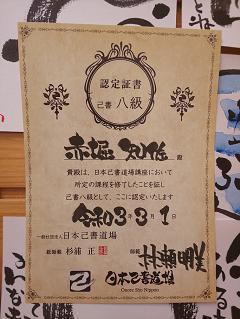 認定証書
己書 八級
赤堀 知佐 殿
貴殿は、日本己書道場講座において
所定の課程を修了したことを証し
己書八級として、ここに認定いたします
令和3年3月1日
一般社団法人 日本己書道場
総師範 杉浦 正
師範 村瀬明美
日本己書道場
Onore Sho Nippon